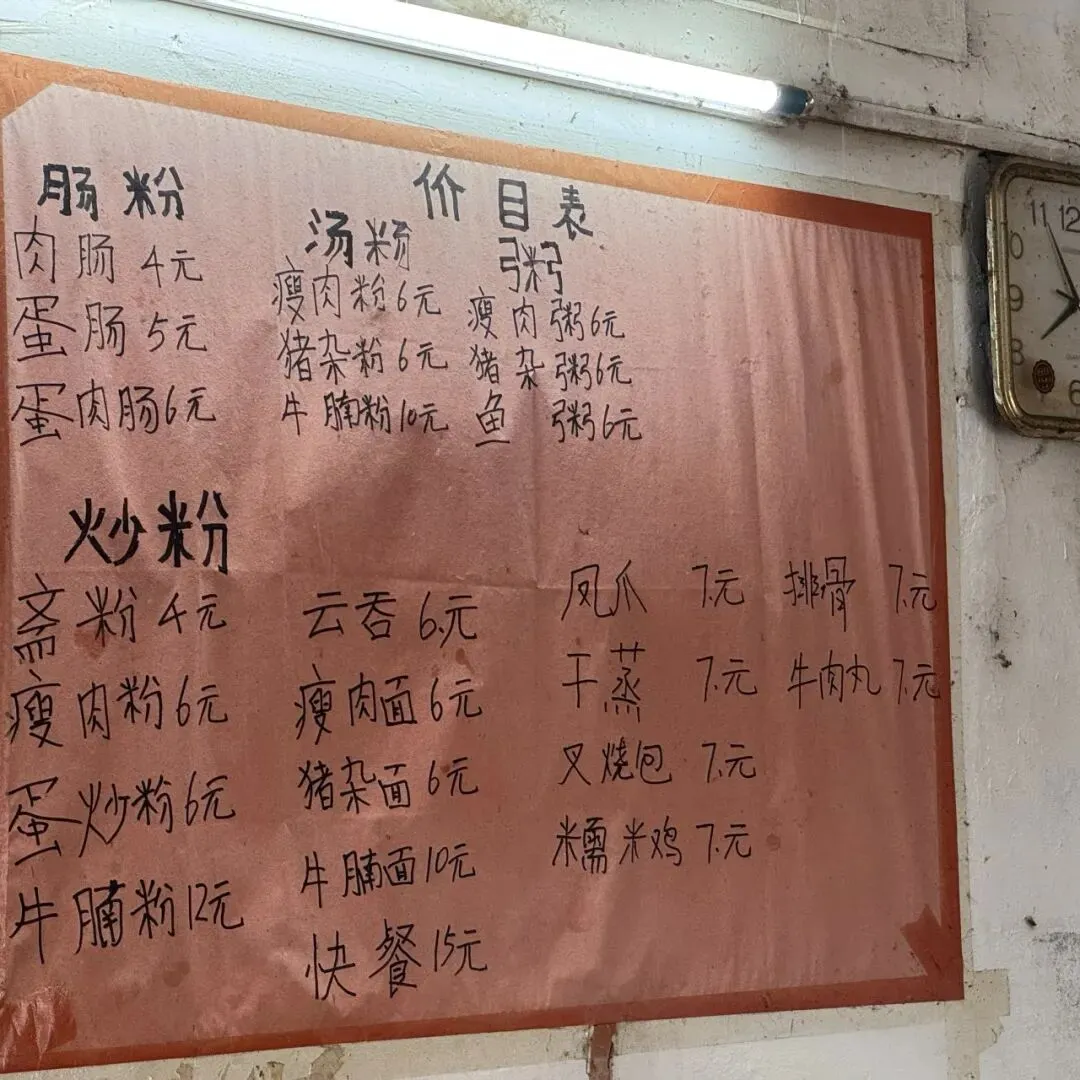 价目表
肠粉
肉肠 4元
蛋肠 5元
蛋肉肠 6元
汤粉
瘦肉粉 6元
猪杂粉 6元
牛腩粉 10元
粥
瘦肉粥 6元
猪杂粥 6元
鱼粥 6元
炒粉
斋粉 4元
瘦肉粉 6元
蛋炒粉 6元
牛腩粉 12元
云吞 6元
瘦肉面 6元
猪杂面 6元
牛腩面 10元
快餐 15元
凤爪 7元
干蒸 7元
叉烧包 7元
糯米鸡 7元
排骨 7元
牛肉丸 7元
11 12
0
9
8
6